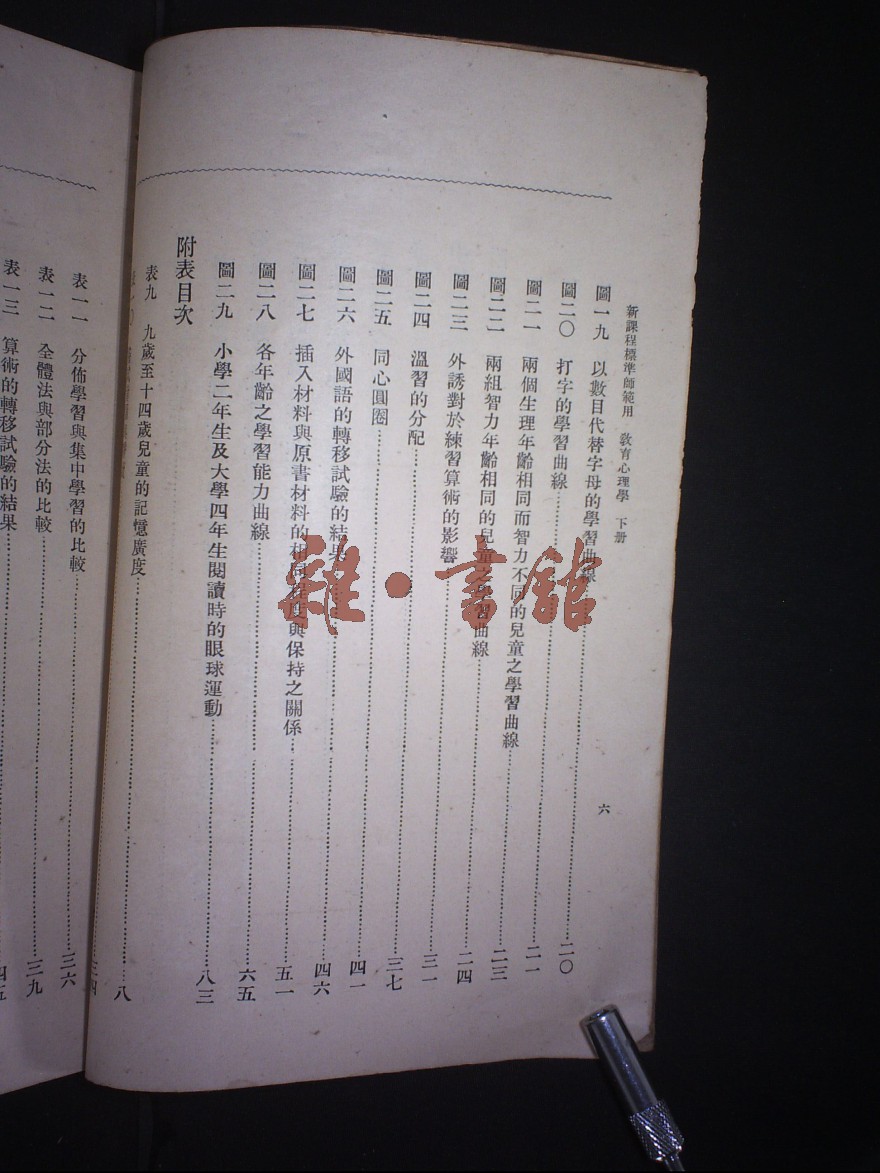 新課程標準師範用 教育心理學 下册 六
圖一九 以數目代替字母的學習曲線 二〇
圖二〇 打字的學習曲線 二一
圖二一 兩個生理年齡相同而智力不同的兒童之學習曲線 二三
圖二二 兩組智力年齡相同的兒童之學習曲線 二四
圖二三 外誘對於練習算術的影響 三一
圖二四 溫習的分配 三七
圖二五 同心圓圈 四一
圖二六 外國語的轉移試驗的結果 四六
圖二七 插入材料與原書材料的相同程度與保持之關係 五一
圖二八 各年齡之學習能力曲線 六五
圖二九 小學二年生及大學四年生閱讀時的眼球運動 八三
附表目次
表九 九歲至十四歲兒童的記憶廣度 八
表一一 分佈學習與集中學習的比較 三六
表一二 全體法與部分法的比較 三九
表一三 算術的轉移試驗的結果
雜·書館